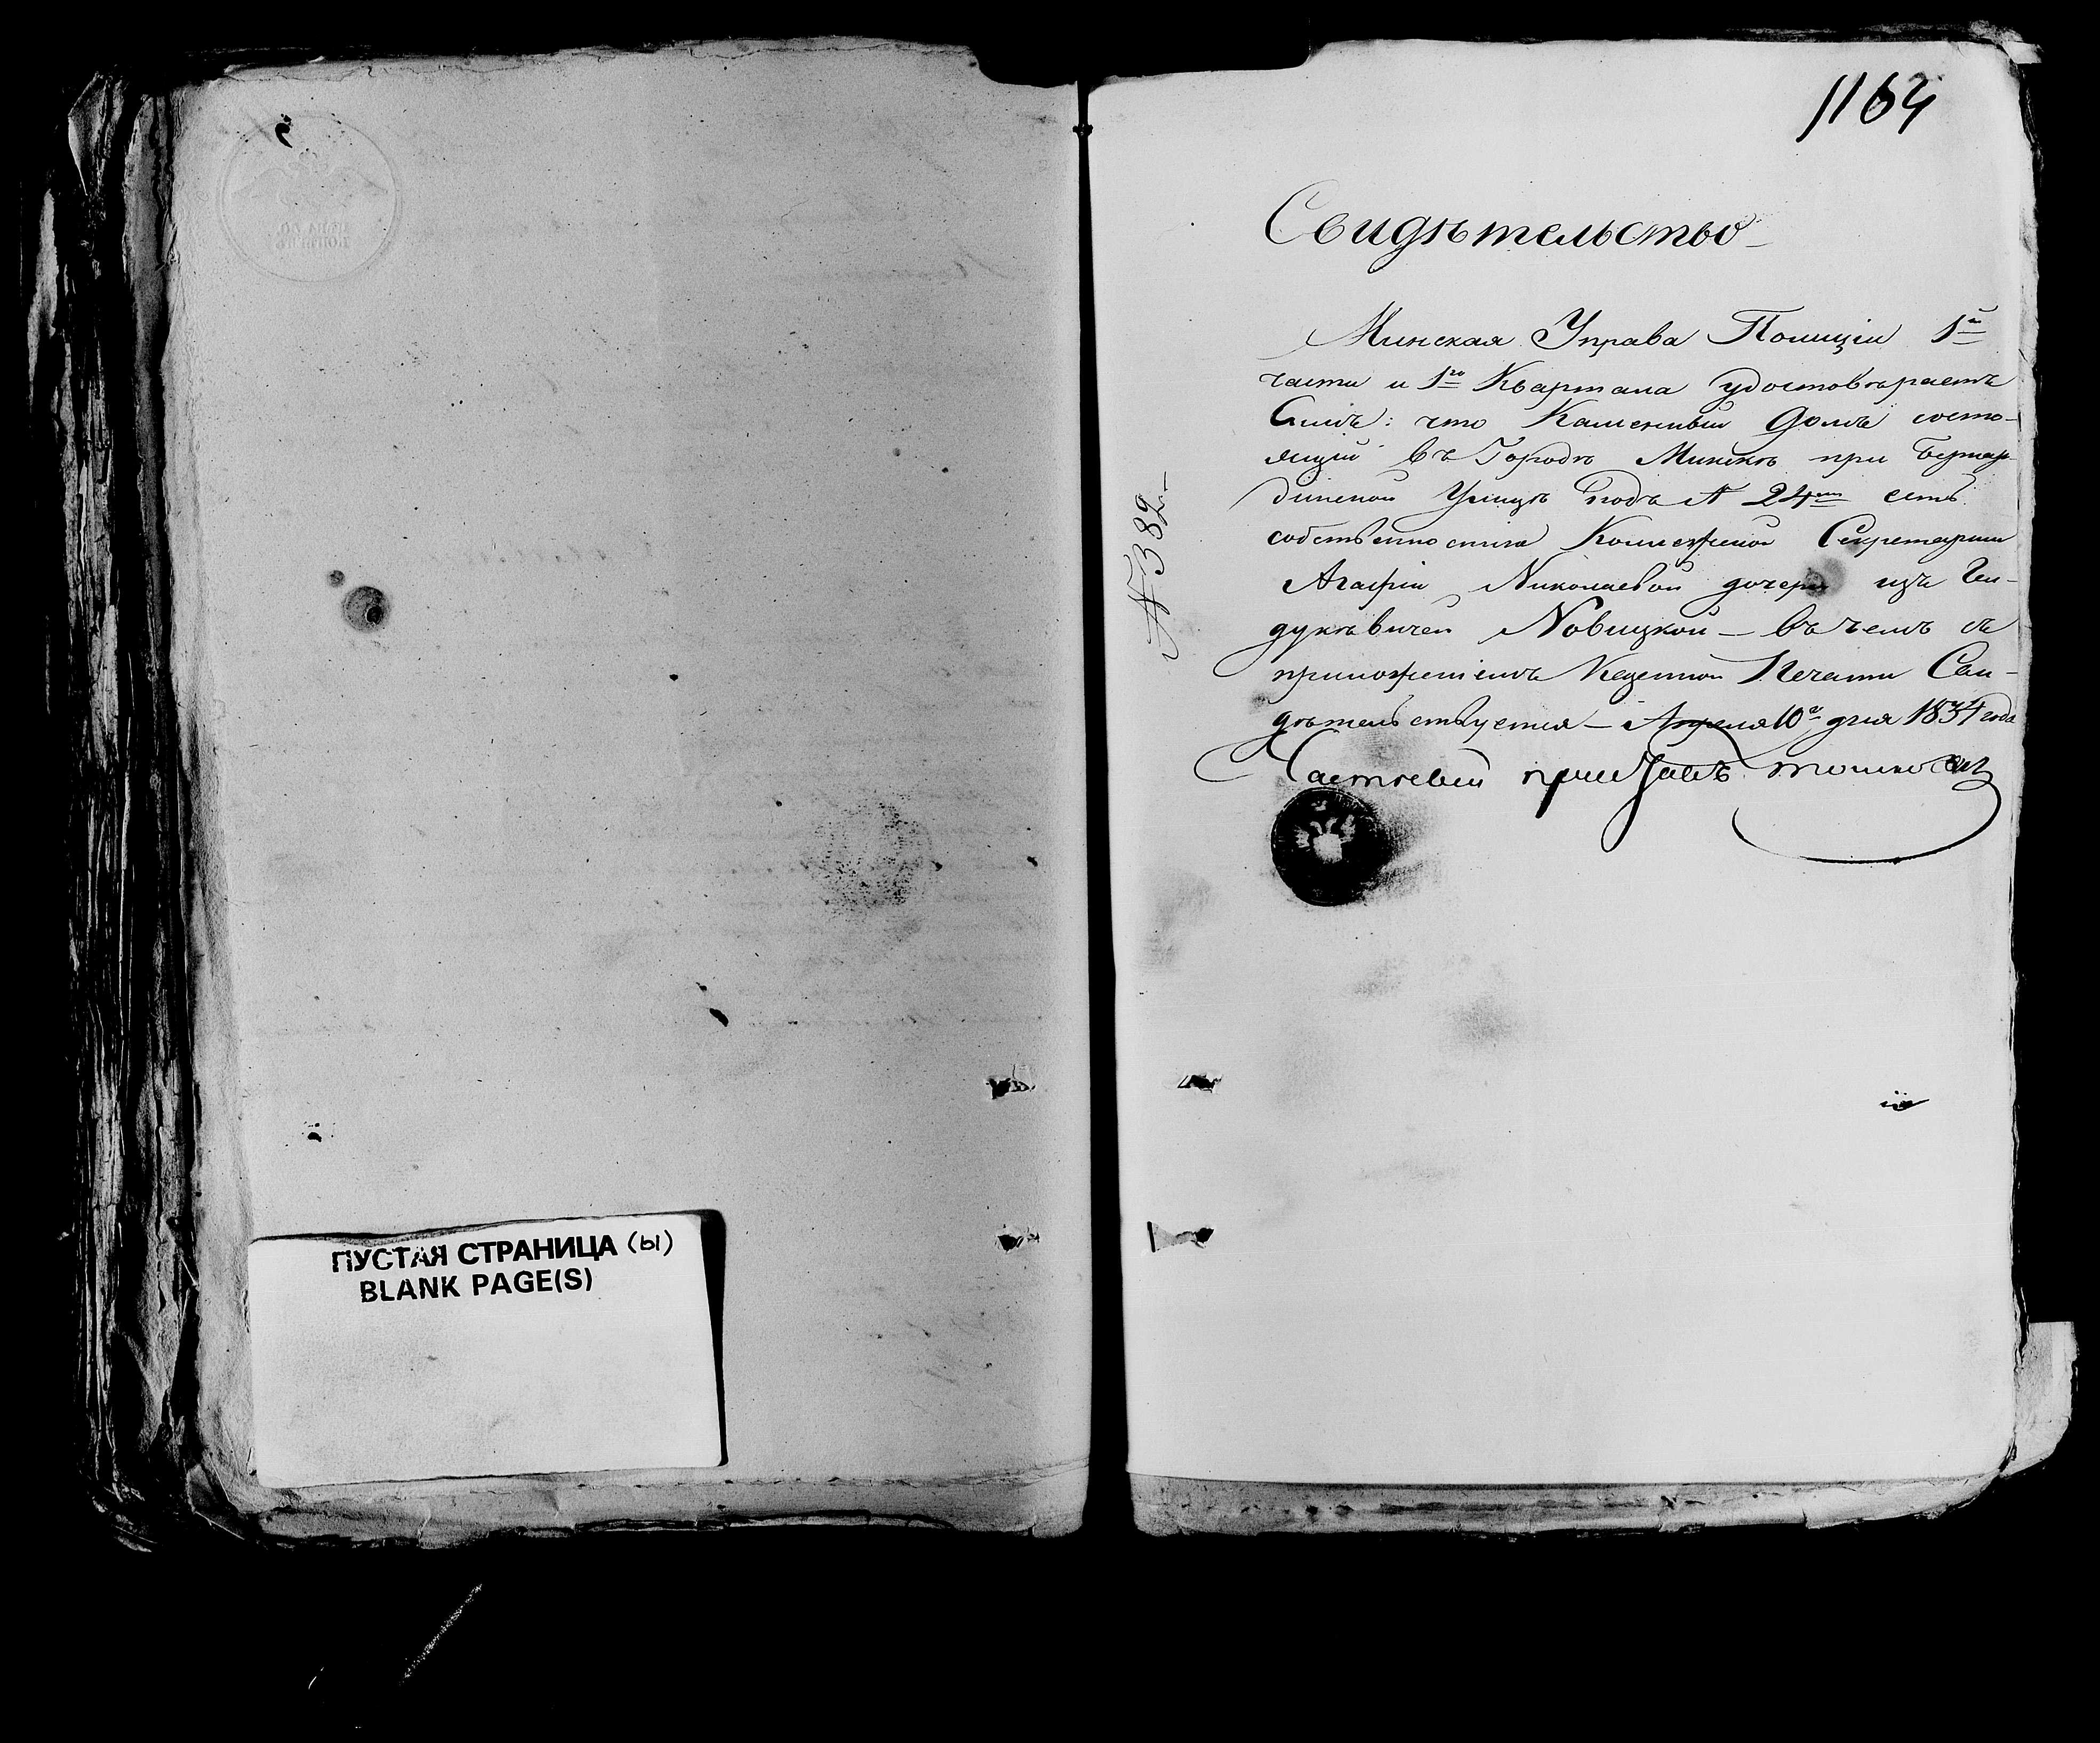 ПУСТАЯ СТРАНИЦА (ы)
BLANK PAGE(S)
1164
Свидѣтельство
№ 382
Минская Управа Полиціи 1й
части и 1го Квартала удостовѣряетъ
Симъ: что Каменный Домъ состо-
ящій въ Городѣ Минскѣ при Бернар-
динской Улицѣ подъ № 24мъ есть
собственностію Коллежской Секретарши
Агафіи Николаевой дочери изъ Ген-
дуковичей Новицкой — въ чемъ съ
приложеніемъ Казенной Печати Сви-
дѣтельствуется — Апреля 10 дня 1834 года
Частный приставъ